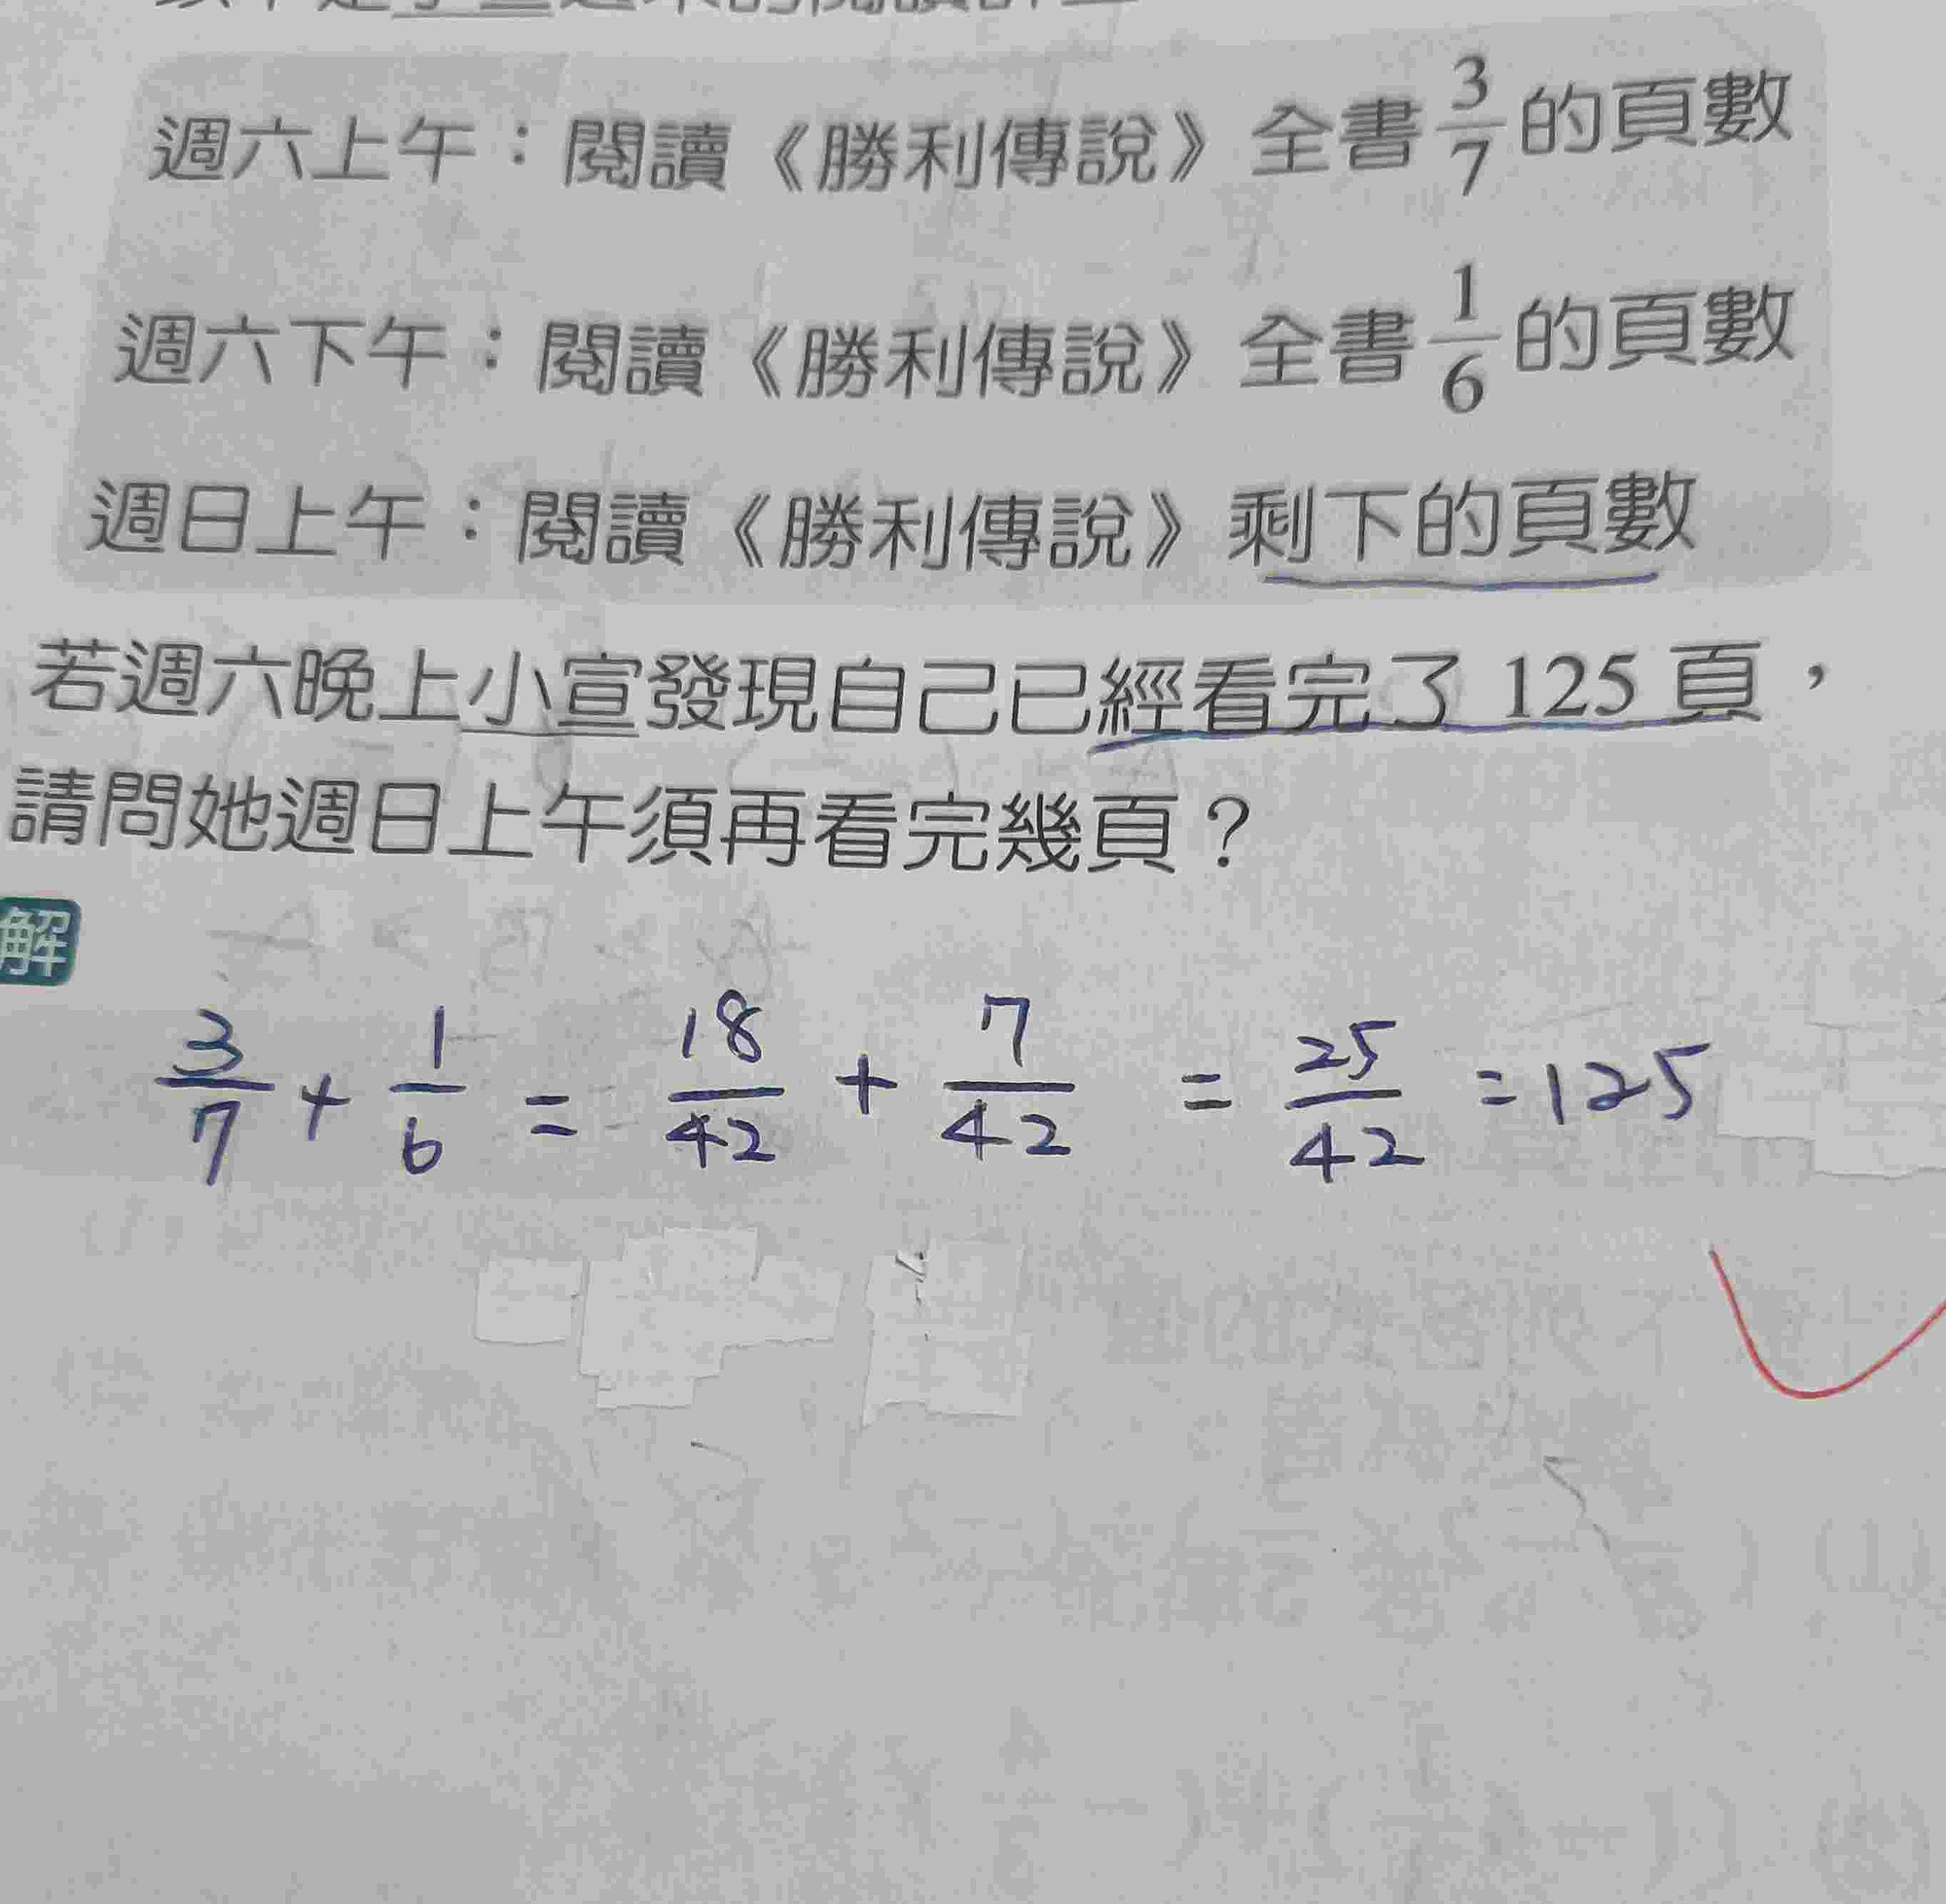 週六上午：閱讀《勝利傳說》全書 3/7 的頁數
週六下午：閱讀《勝利傳說》全書 1/6 的頁數
週日上午：閱讀《勝利傳說》剩下的頁數
若週六晚上小宣發現自己已經看完了 125 頁，
請問她週日上午須再看完幾頁？
解
3/7 + 1/6 = 18/42 + 7/42 = 25/42 = 125